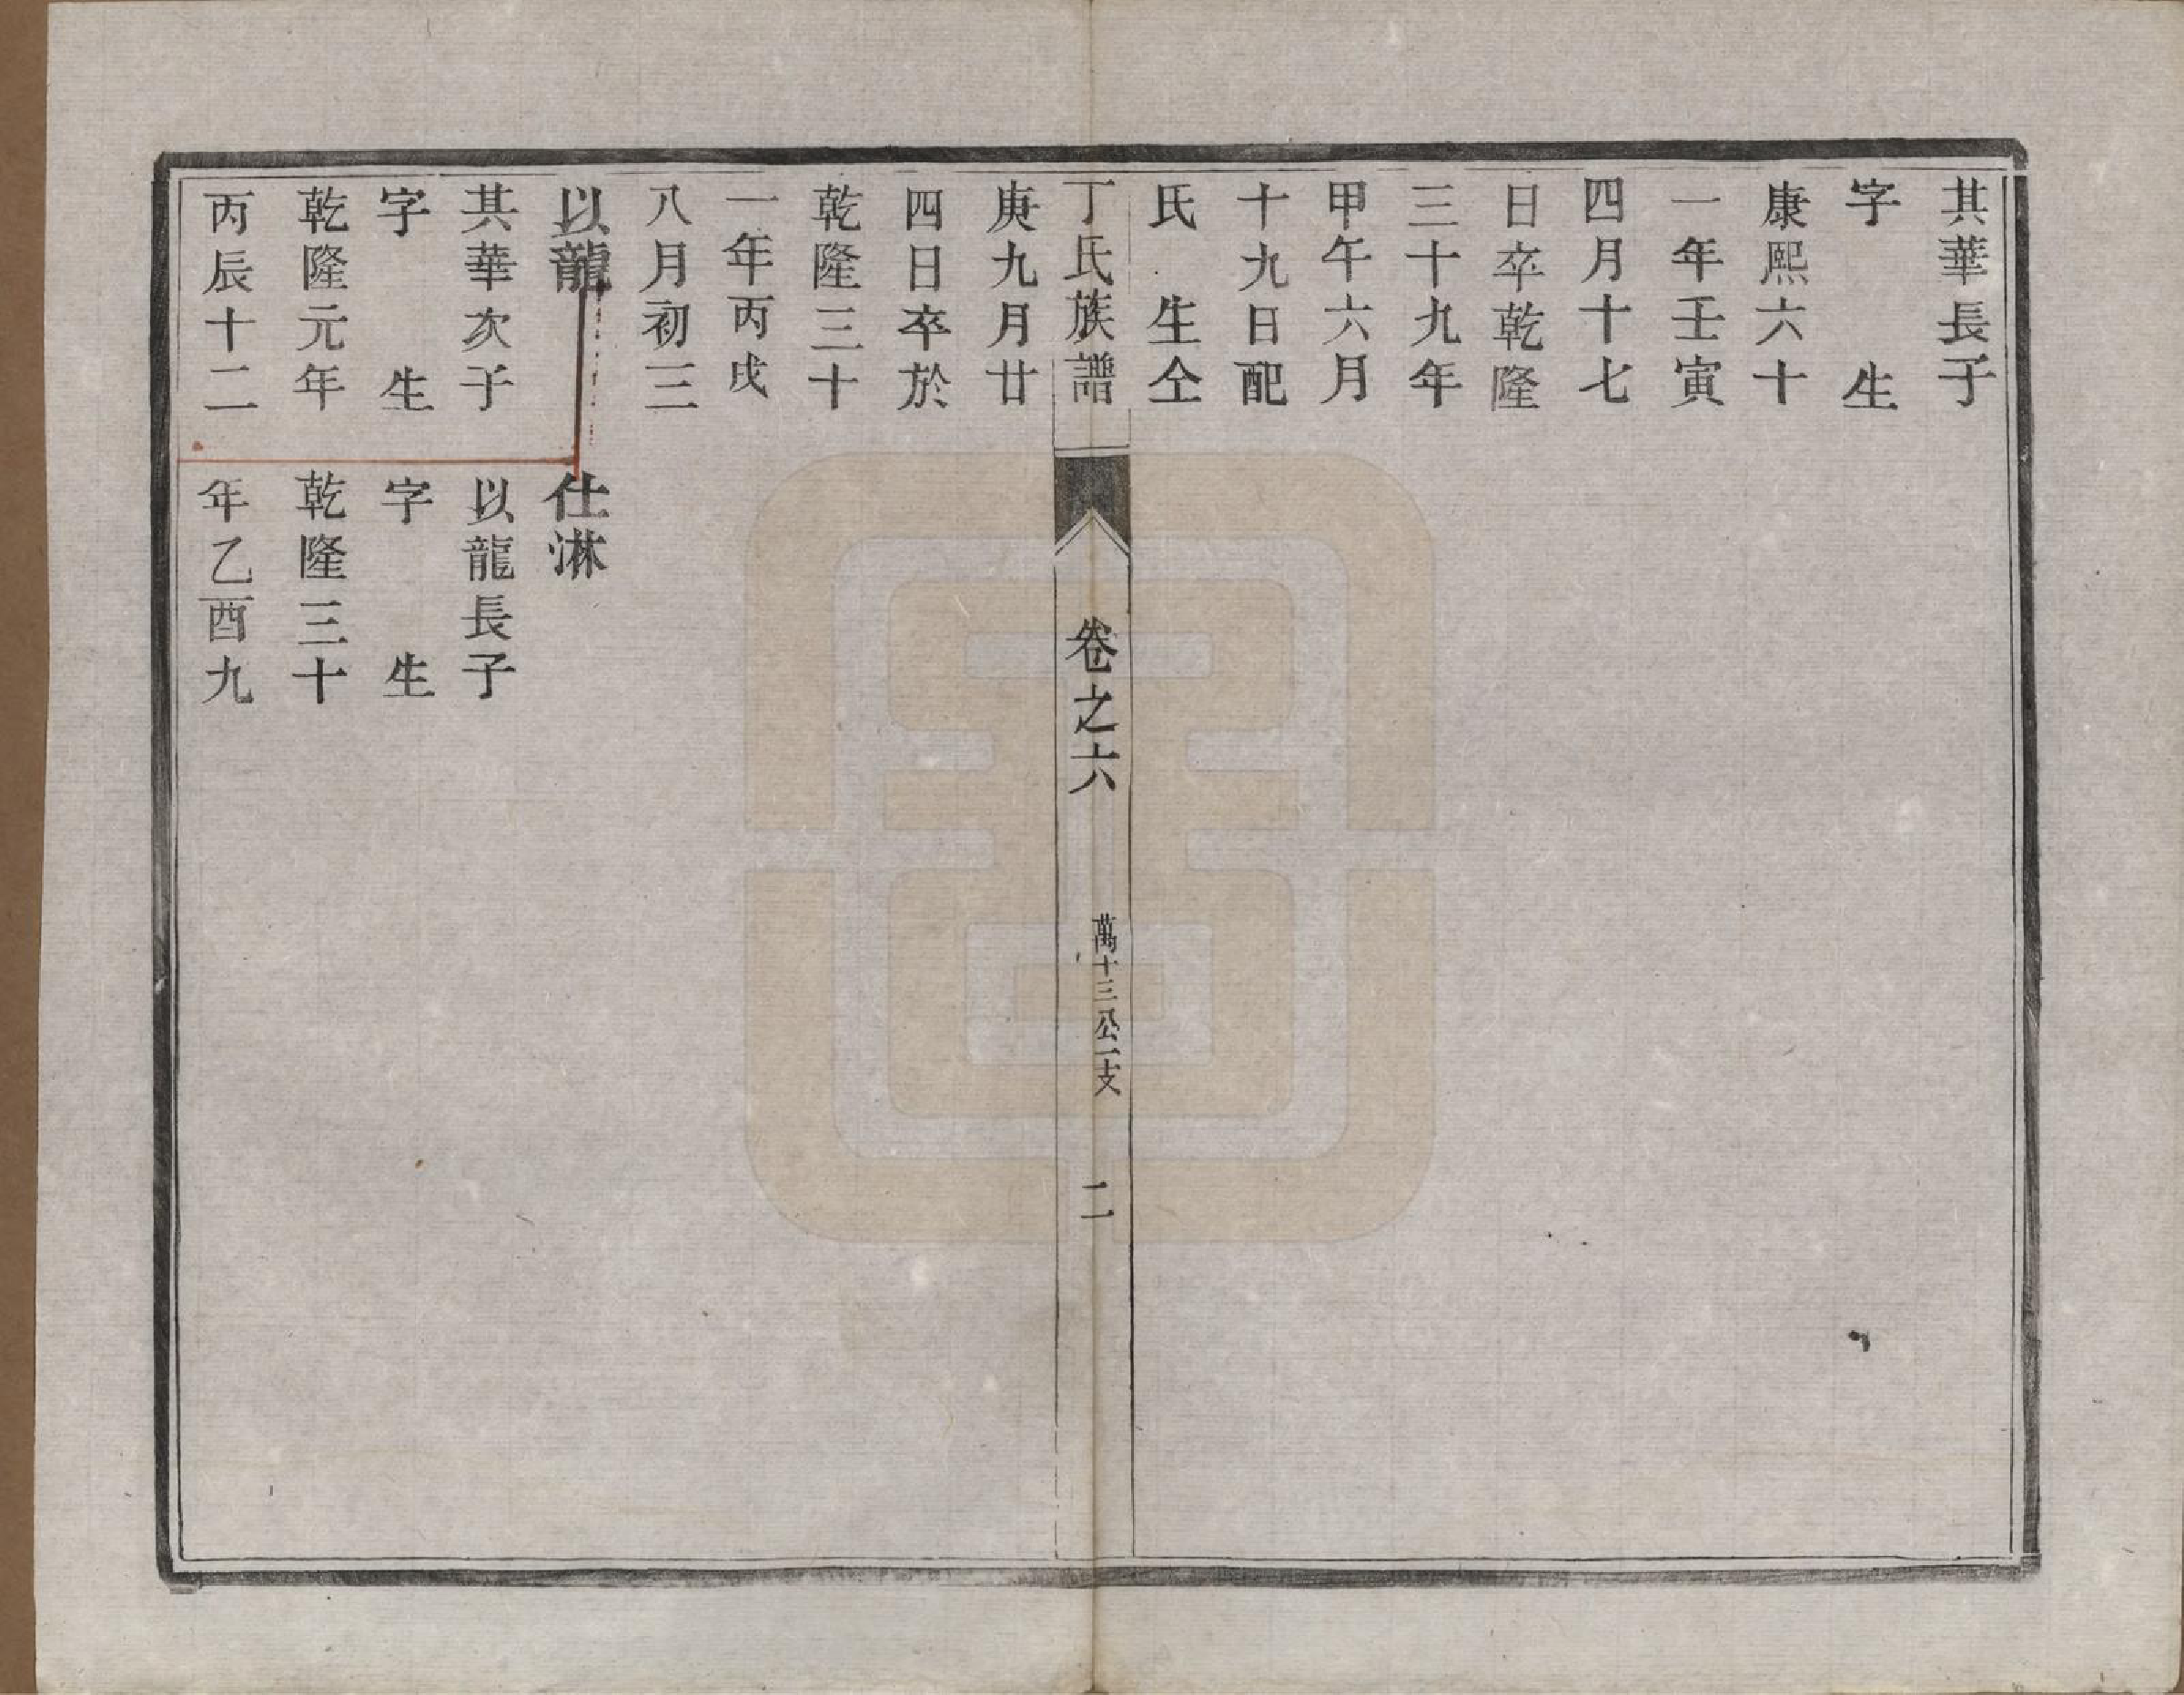 其華長子
字　生
康熙六十
一年壬寅
四月十七
日卒乾隆
三十九年
甲午六月
十九日配
氏　生仝
丁氏族譜　卷之六　萬十三公一支　二
庚九月廿
四日卒於
乾隆三十
一年丙戌
八月初三
以龍
其華次子
字　生
乾隆元年
丙辰十二
仕淋
以龍長子
字　生
乾隆三十
年乙酉九